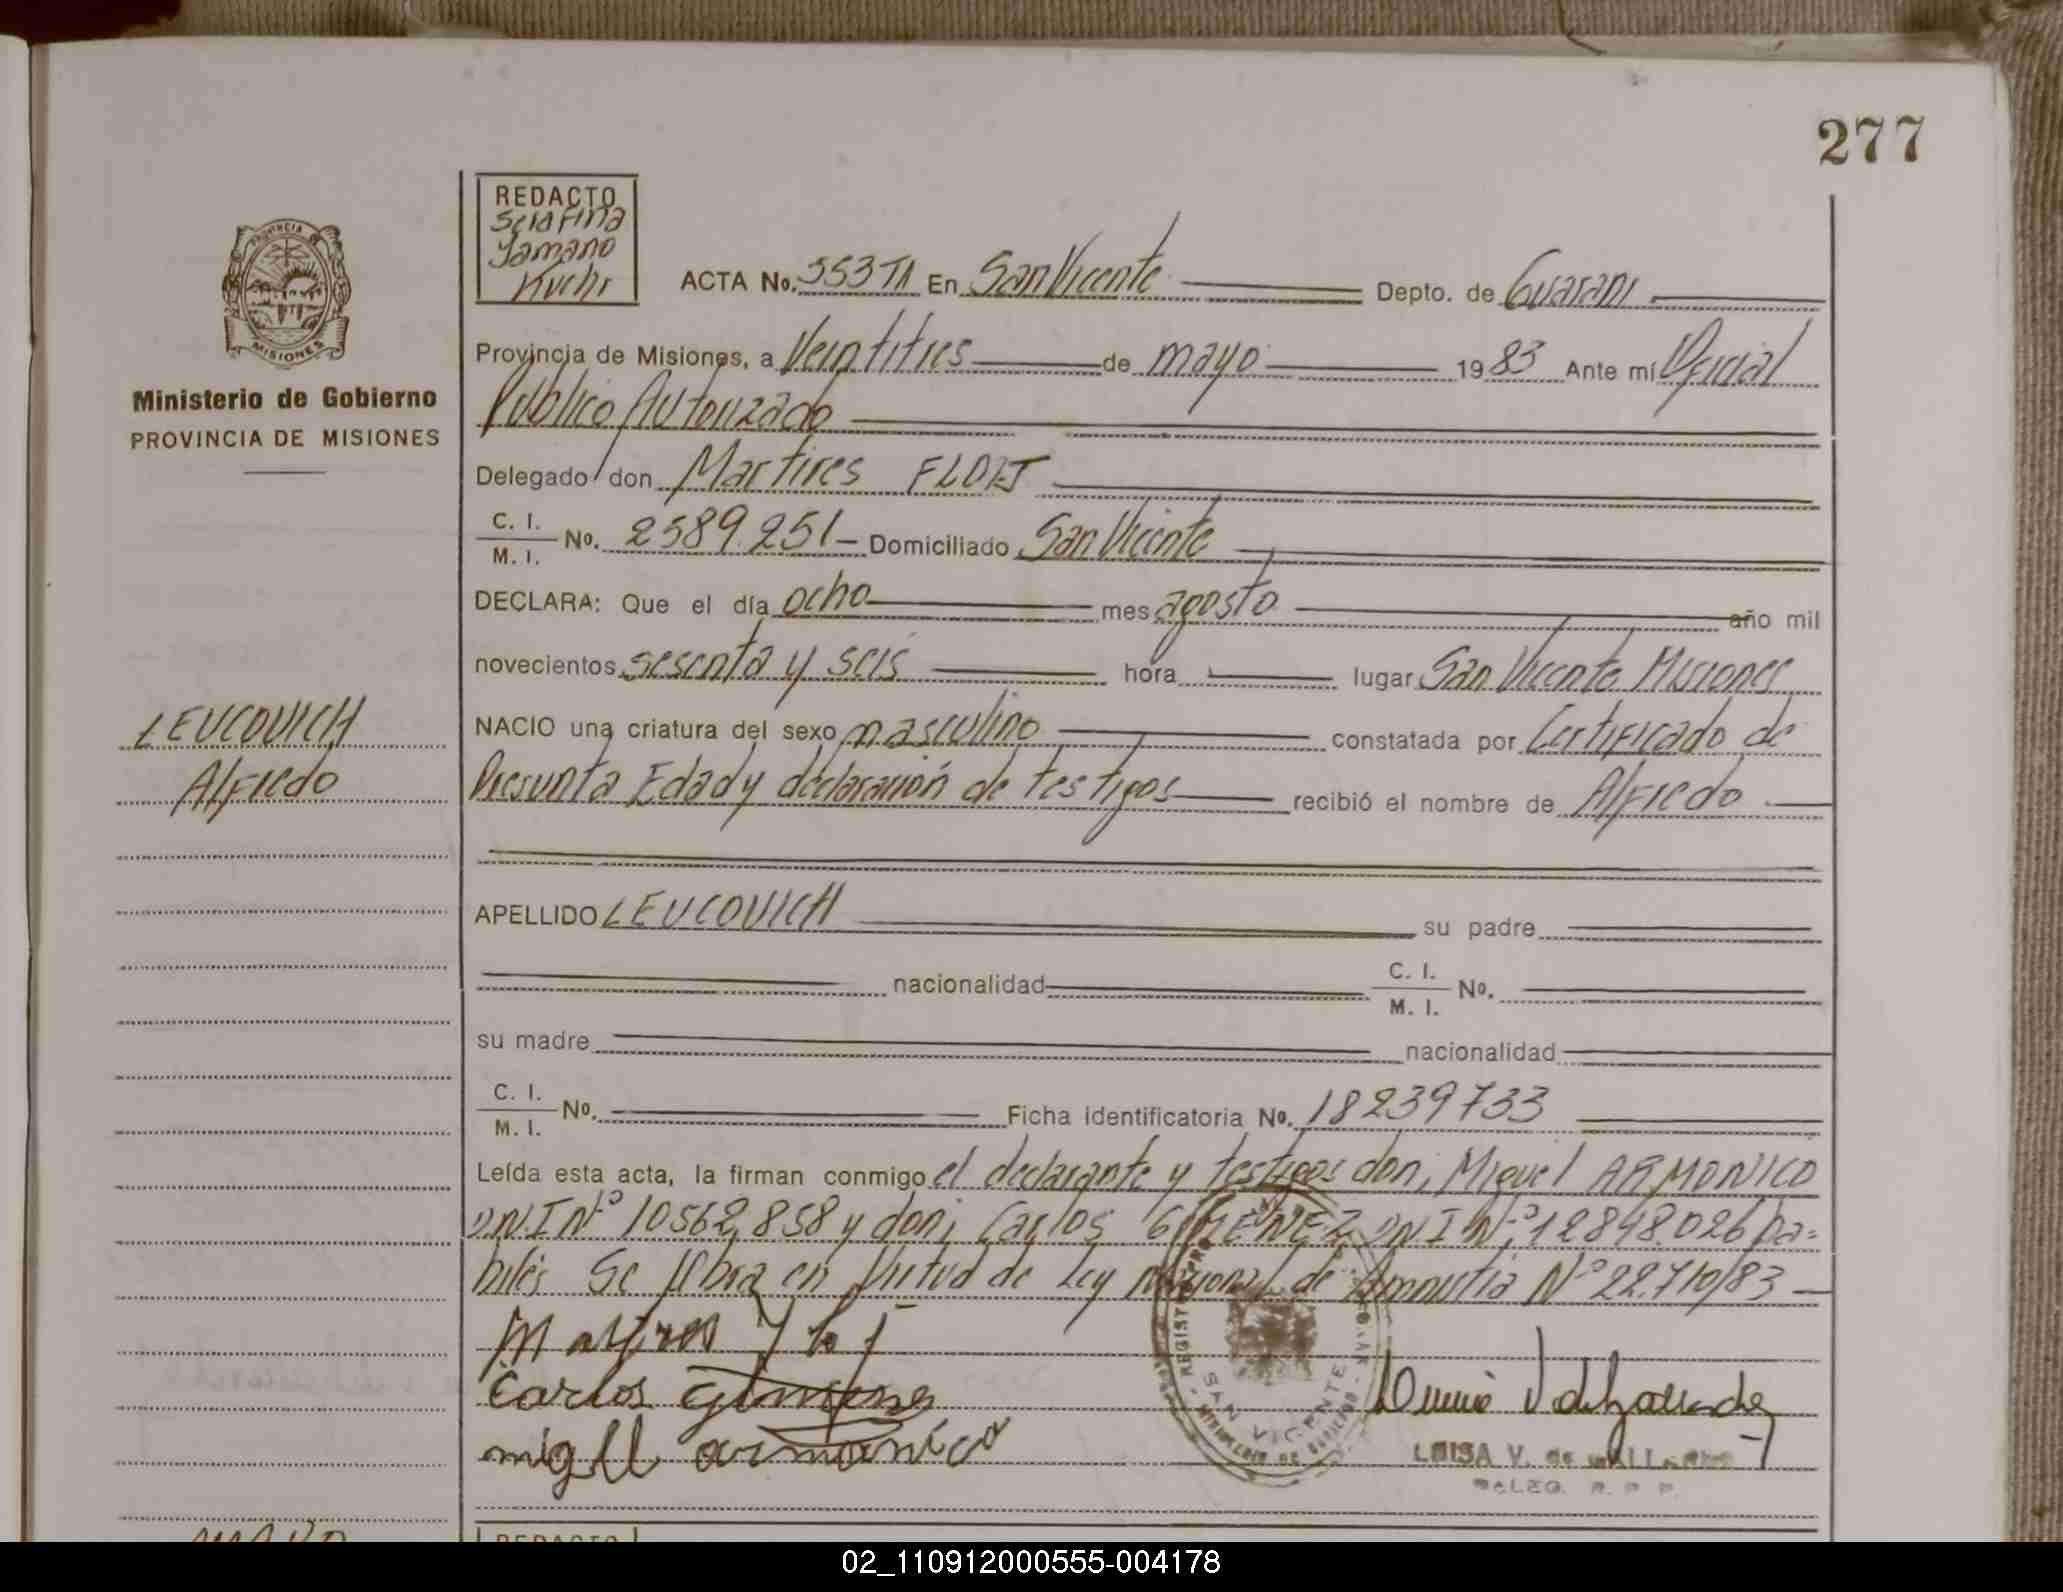 277
REDACTO
Serafina
Yamano
Kuchr
PROVINCIA
MISIONES
Ministerio de Gobierno
PROVINCIA DE MISIONES
ACTA No. 553 TA En San Vicente Depto. de Guarani
Provincia de Misiones, a Veintitres de mayo 1983 Ante mí Oficial
Publico Autorizado
Delegado don Martires FLORES
C. I.
M. I. No. 2589.251- Domiciliado San Vicente
DECLARA: Que el día ocho mes agosto año mil
novecientos sesenta y seis hora lugar San Vicente Misiones
LEUCOVICH
Alfredo
NACIO una criatura del sexo masculino constatada por Certificado de
Presunta Edad y declaración de testigos recibió el nombre de Alfredo
APELLIDO LEUCOVICH su padre
nacionalidad C. I.
M. I. No.
su madre nacionalidad
C. I.
M. I. No. Ficha identificatoria No. 18239733
Leída esta acta, la firman conmigo el declarante y testigos don; Miguel ARMONICO
D.N.I Nº 10562.858 y don; Carlos GIMENEZ DNI Nº 12848.026 ha=
biles Se labra en Virtud de Ley nacional de Amnistia Nº 22.710/83 -
Carlos Gimenez
migll armonico
SAN VICENTE
LUISA V. de
DELEG. R. P. P.
REDACTO
02_110912000555-004178